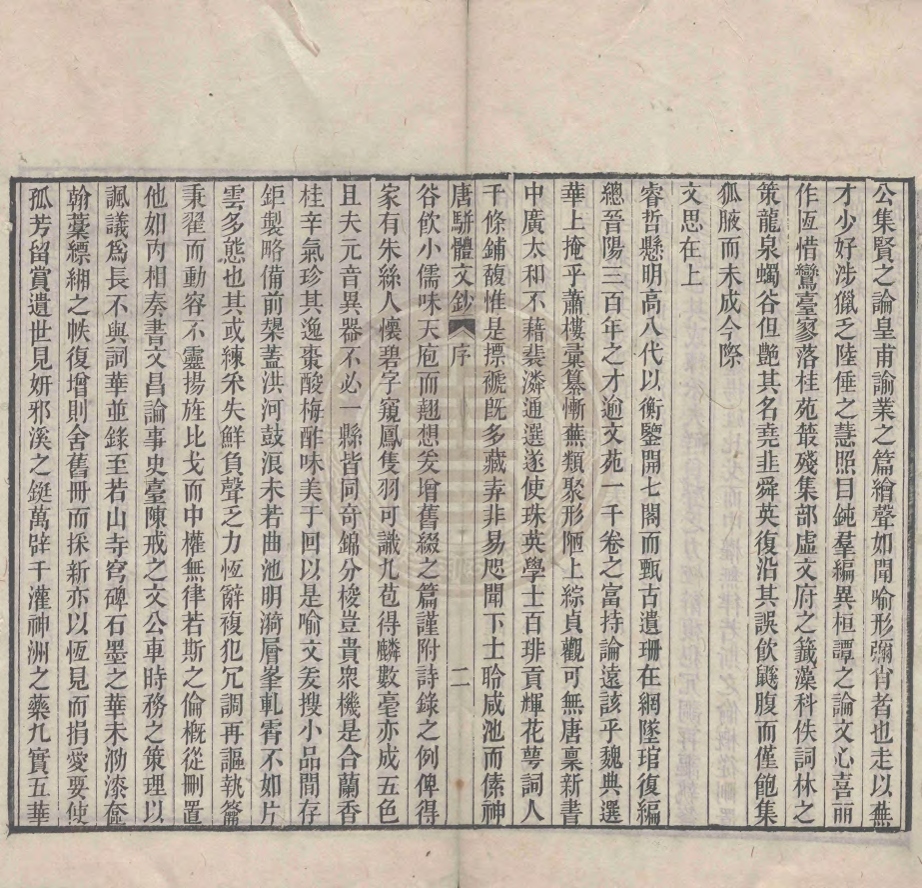 公集賢之論皇甫諭業之篇繪聲如聞喻形彌肖者也走以蕪
才少好涉獵乏陸倕之慧照目鈍羣編異桓譚之論文心喜丽
作恆惜鸞臺寥落桂苑叢殘集部虛文府之籤藻科佚詞林之
策龍泉蠋谷但艷其名堯韭舜英復沿其誤飲鼷腹而僅飽集
狐腋而未成今際
文思在上
睿哲懸明高八代以衡鑒開七閣而甄古遺珊在網墜琯復編
總晉陽三百年之才逾文苑一千卷之富持論遠該乎魏典選
華上掩乎蕭樓彙纂慚蕪類聚形陋上綜貞觀可無唐稟新書
中廣太和不藉裴潾通選遂使珠英學士百琲貢輝花萼詞人
千條鋪馥惟是摽褫既多藏弆非易咫聞下士聆咸池而傃神
唐駢體文鈔 序 二
谷飮小儒味天庖而翹想爰增舊綴之篇謹附詩錄之例俾得
家有朱絲人懷碧字窺鳳隻羽可識九苞得麟數毫亦成五色
且夫元音異器不必一縣皆同奇錦分棱豈貴衆機是合蘭香
桂辛氣珍其逸棗酸梅酢味美于回以是喻文爰搜小品間存
鉅製略備前榘蓋洪河鼓浪未若曲池明漪層峯軋霄不如片
雲多態也其或練糸失鮮負聲乏力恆辭複犯冗調再謳執籥
秉翟而動容不靈揚旌比戈而中權無律若斯之倫概從刪置
他如內相奏書文昌論事史臺陳戒之文公車時務之策理以
諷議爲長不與詞華並錄至若山寺穹碑石墨之華未泐漆奩
翰藁縹緗之帙復增則舍舊冊而採新亦以恆見而捐愛要使
孤芳留賞遺世見妍邪溪之鋌萬辟千灌神洲之藥九實五華